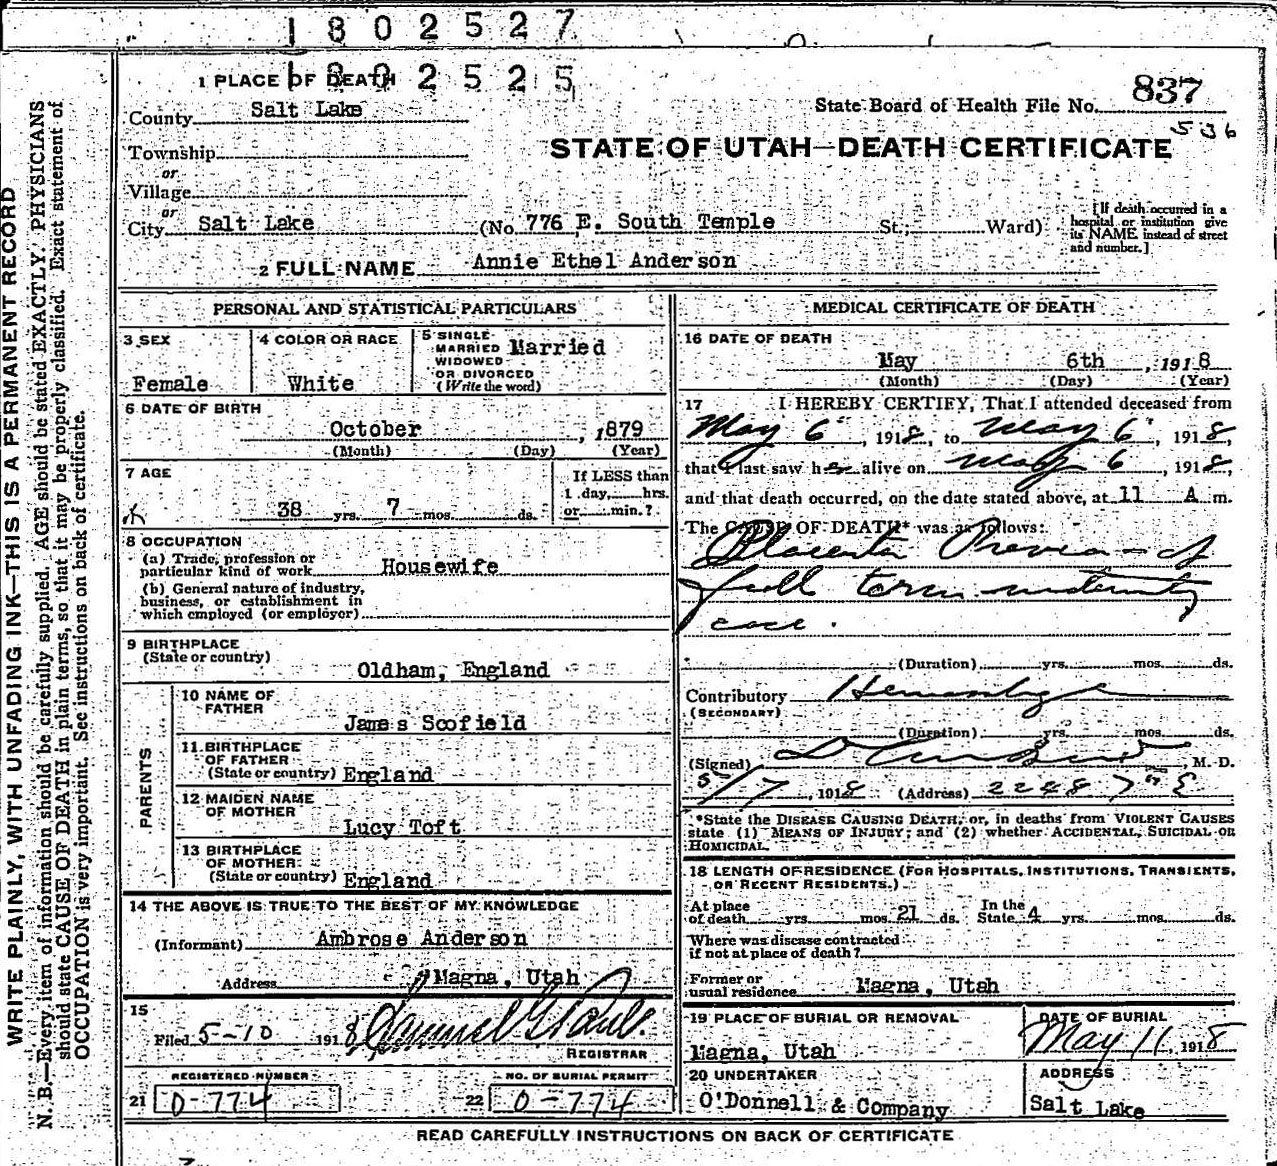 1802527
1802525
1 PLACE OF DEATH
County Salt Lake
State Board of Health File No. 837
536
STATE OF UTAH—DEATH CERTIFICATE
Township
or
Village
or
City Salt Lake (No. 776 E. South Temple St.; Ward)
[If death occurred in a
hospital or institution give
its NAME instead of street
and number.]
2 FULL NAME Annie Ethel Anderson
PERSONAL AND STATISTICAL PARTICULARS
3 SEX
Female
4 COLOR OR RACE
White
5 SINGLE
MARRIED Married
WIDOWED
OR DIVORCED
(Write the word)
6 DATE OF BIRTH
October , 1879
(Month) (Day) (Year)
7 AGE
38 yrs. 7 mos. ds.
If LESS than
1 day, hrs.
or min.?
8 OCCUPATION
(a) Trade, profession or
particular kind of work Housewife
(b) General nature of industry,
business, or establishment in
which employed (or employer)
9 BIRTHPLACE
(State or country)
Oldham, England
PARENTS
10 NAME OF
FATHER
James Scofield
11 BIRTHPLACE
OF FATHER
(State or country) England
12 MAIDEN NAME
OF MOTHER
Lucy Toft
13 BIRTHPLACE
OF MOTHER
(State or country) England
14 THE ABOVE IS TRUE TO THE BEST OF MY KNOWLEDGE
(Informant) Ambrose Anderson
Address Magna, Utah
15
Filed 5-10 1918
REGISTRAR
REGISTERED NUMBER
21 0-774
NO. OF BURIAL PERMIT
22 0-774
MEDICAL CERTIFICATE OF DEATH
16 DATE OF DEATH
May 6th , 1918
(Month) (Day) (Year)
17 I HEREBY CERTIFY, That I attended deceased from
May 6", 1918, to May 6", 1918,
that I last saw her alive on May 6, 1918,
and that death occurred, on the date stated above, at 11 A m.
The CAUSE OF DEATH* was as follows:
Placenta Previa - of
full term maternity
case.
(Duration) yrs. mos. ds.
Contributory Hemorrhage
(SECONDARY)
(Duration) yrs. mos. ds.
(Signed) , M. D.
5/7, 1918 (Address) 2248 7th E
*State the DISEASE CAUSING DEATH, or, in deaths from VIOLENT CAUSES
state (1) MEANS OF INJURY; and (2) whether ACCIDENTAL, SUICIDAL OR
HOMICIDAL.
18 LENGTH OF RESIDENCE (FOR HOSPITALS, INSTITUTIONS, TRANSIENTS,
OR RECENT RESIDENTS.)
At place
of death yrs. mos. 21 ds.
In the
State 4 yrs. mos. ds.
Where was disease contracted
if not at place of death?
Former or
usual residence Magna, Utah
19 PLACE OF BURIAL OR REMOVAL
Magna, Utah
DATE OF BURIAL
May 11, 1918
20 UNDERTAKER
O'Donnell & Company
ADDRESS
Salt Lake
READ CAREFULLY INSTRUCTIONS ON BACK OF CERTIFICATE
WRITE PLAINLY, WITH UNFADING INK—THIS IS A PERMANENT RECORD
N. B.—Every item of information should be carefully supplied. AGE should be stated EXACTLY. PHYSICIANS
should state CAUSE OF DEATH in plain terms, so that it may be properly classified. Exact statement of
OCCUPATION is very important. See instructions on back of certificate.